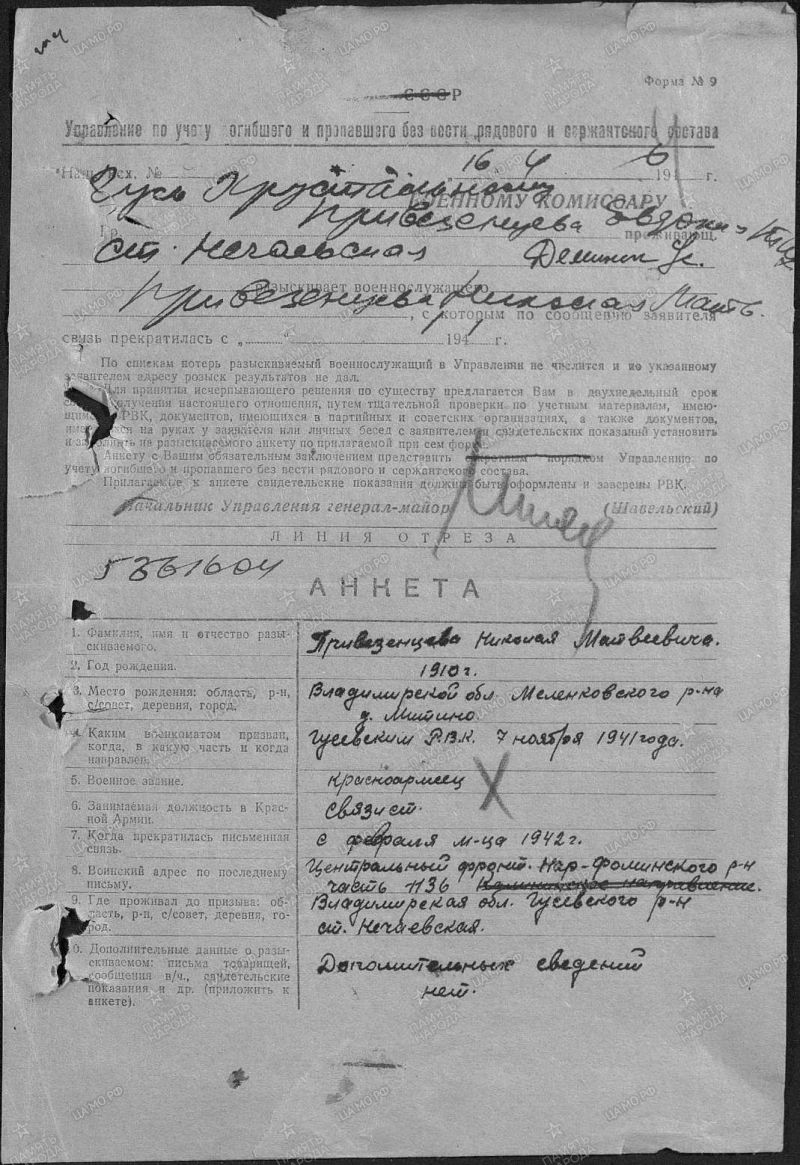 Форма № 9
СССР
Управление по учету погибшего и пропавшего без вести рядового и сержантского состава
Наш исх. № „16 4 6 194 г.
Гусь Хрустальному
ВОЕННОМУ КОМИССАРУ
Гр. Привезенцева проживающ.
ст. Нечаевская
разыскивает военнослужащего
Привезенцева Николая Матв.
, с которым по сообщению заявителя
связь прекратилась с „ “ 194 г.
По спискам потерь разыскиваемый военнослужащий в Управлении не числится и по указанному
заявителем адресу розыск результатов не дал.
Для принятия исчерпывающего решения по существу предлагается Вам в двухнедельный срок
получения настоящего отношения, путем тщательной проверки по учетным материалам, имею-
РВК, документов, имеющихся в партийных и советских организациях, а также документов,
на руках у заявителя или личных бесед с заявителем и свидетельских показаний установить
и заполнить на разыскиваемого анкету по прилагаемой при сем форме.
Анкету с Вашим обязательным заключением представить секретным порядком Управлению по
учету погибшего и пропавшего без вести рядового и сержантского состава.
Прилагаемые к анкете свидетельские показания должны быть оформлены и заверены РВК.
Начальник Управления генерал-майор (Шавельский)
ЛИНИЯ ОТРЕЗА
5361604
АНКЕТА
1. Фамилия, имя и отчество разы-
скиваемого.
Привезенцева Николая Матвеевича.
2. Год рождения.
1910 г.
3. Место рождения: область, р-н,
с/совет, деревня, город.
Владимирской обл. Меленковского р-на
д. Митино
4. Каким военкоматом призван,
когда, в какую часть и когда
направлен.
Гусевским Р.В.К. 7 ноября 1941 года.
5. Военное звание.
Красноармеец
6. Занимаемая должность в Крас-
ной Армии.
Связист.
7. Когда прекратилась письменная
связь.
с февраля м-ца 1942 г.
8. Воинский адрес по последнему
письму.
Центральный фронт. Нар-Фоминского р-н
часть 1136 Калининское направление.
9. Где проживал до призыва: об-
ласть, р-н, с/совет, деревня, го-
род.
Владимирская обл. Гусевского р-н
ст. Нечаевская.
0. Дополнительные данные о разы-
скиваемом: письма товарищей,
сообщения в/ч., свидетельские
показания и др. (приложить к
анкете).
Дополнительных сведений
нет.